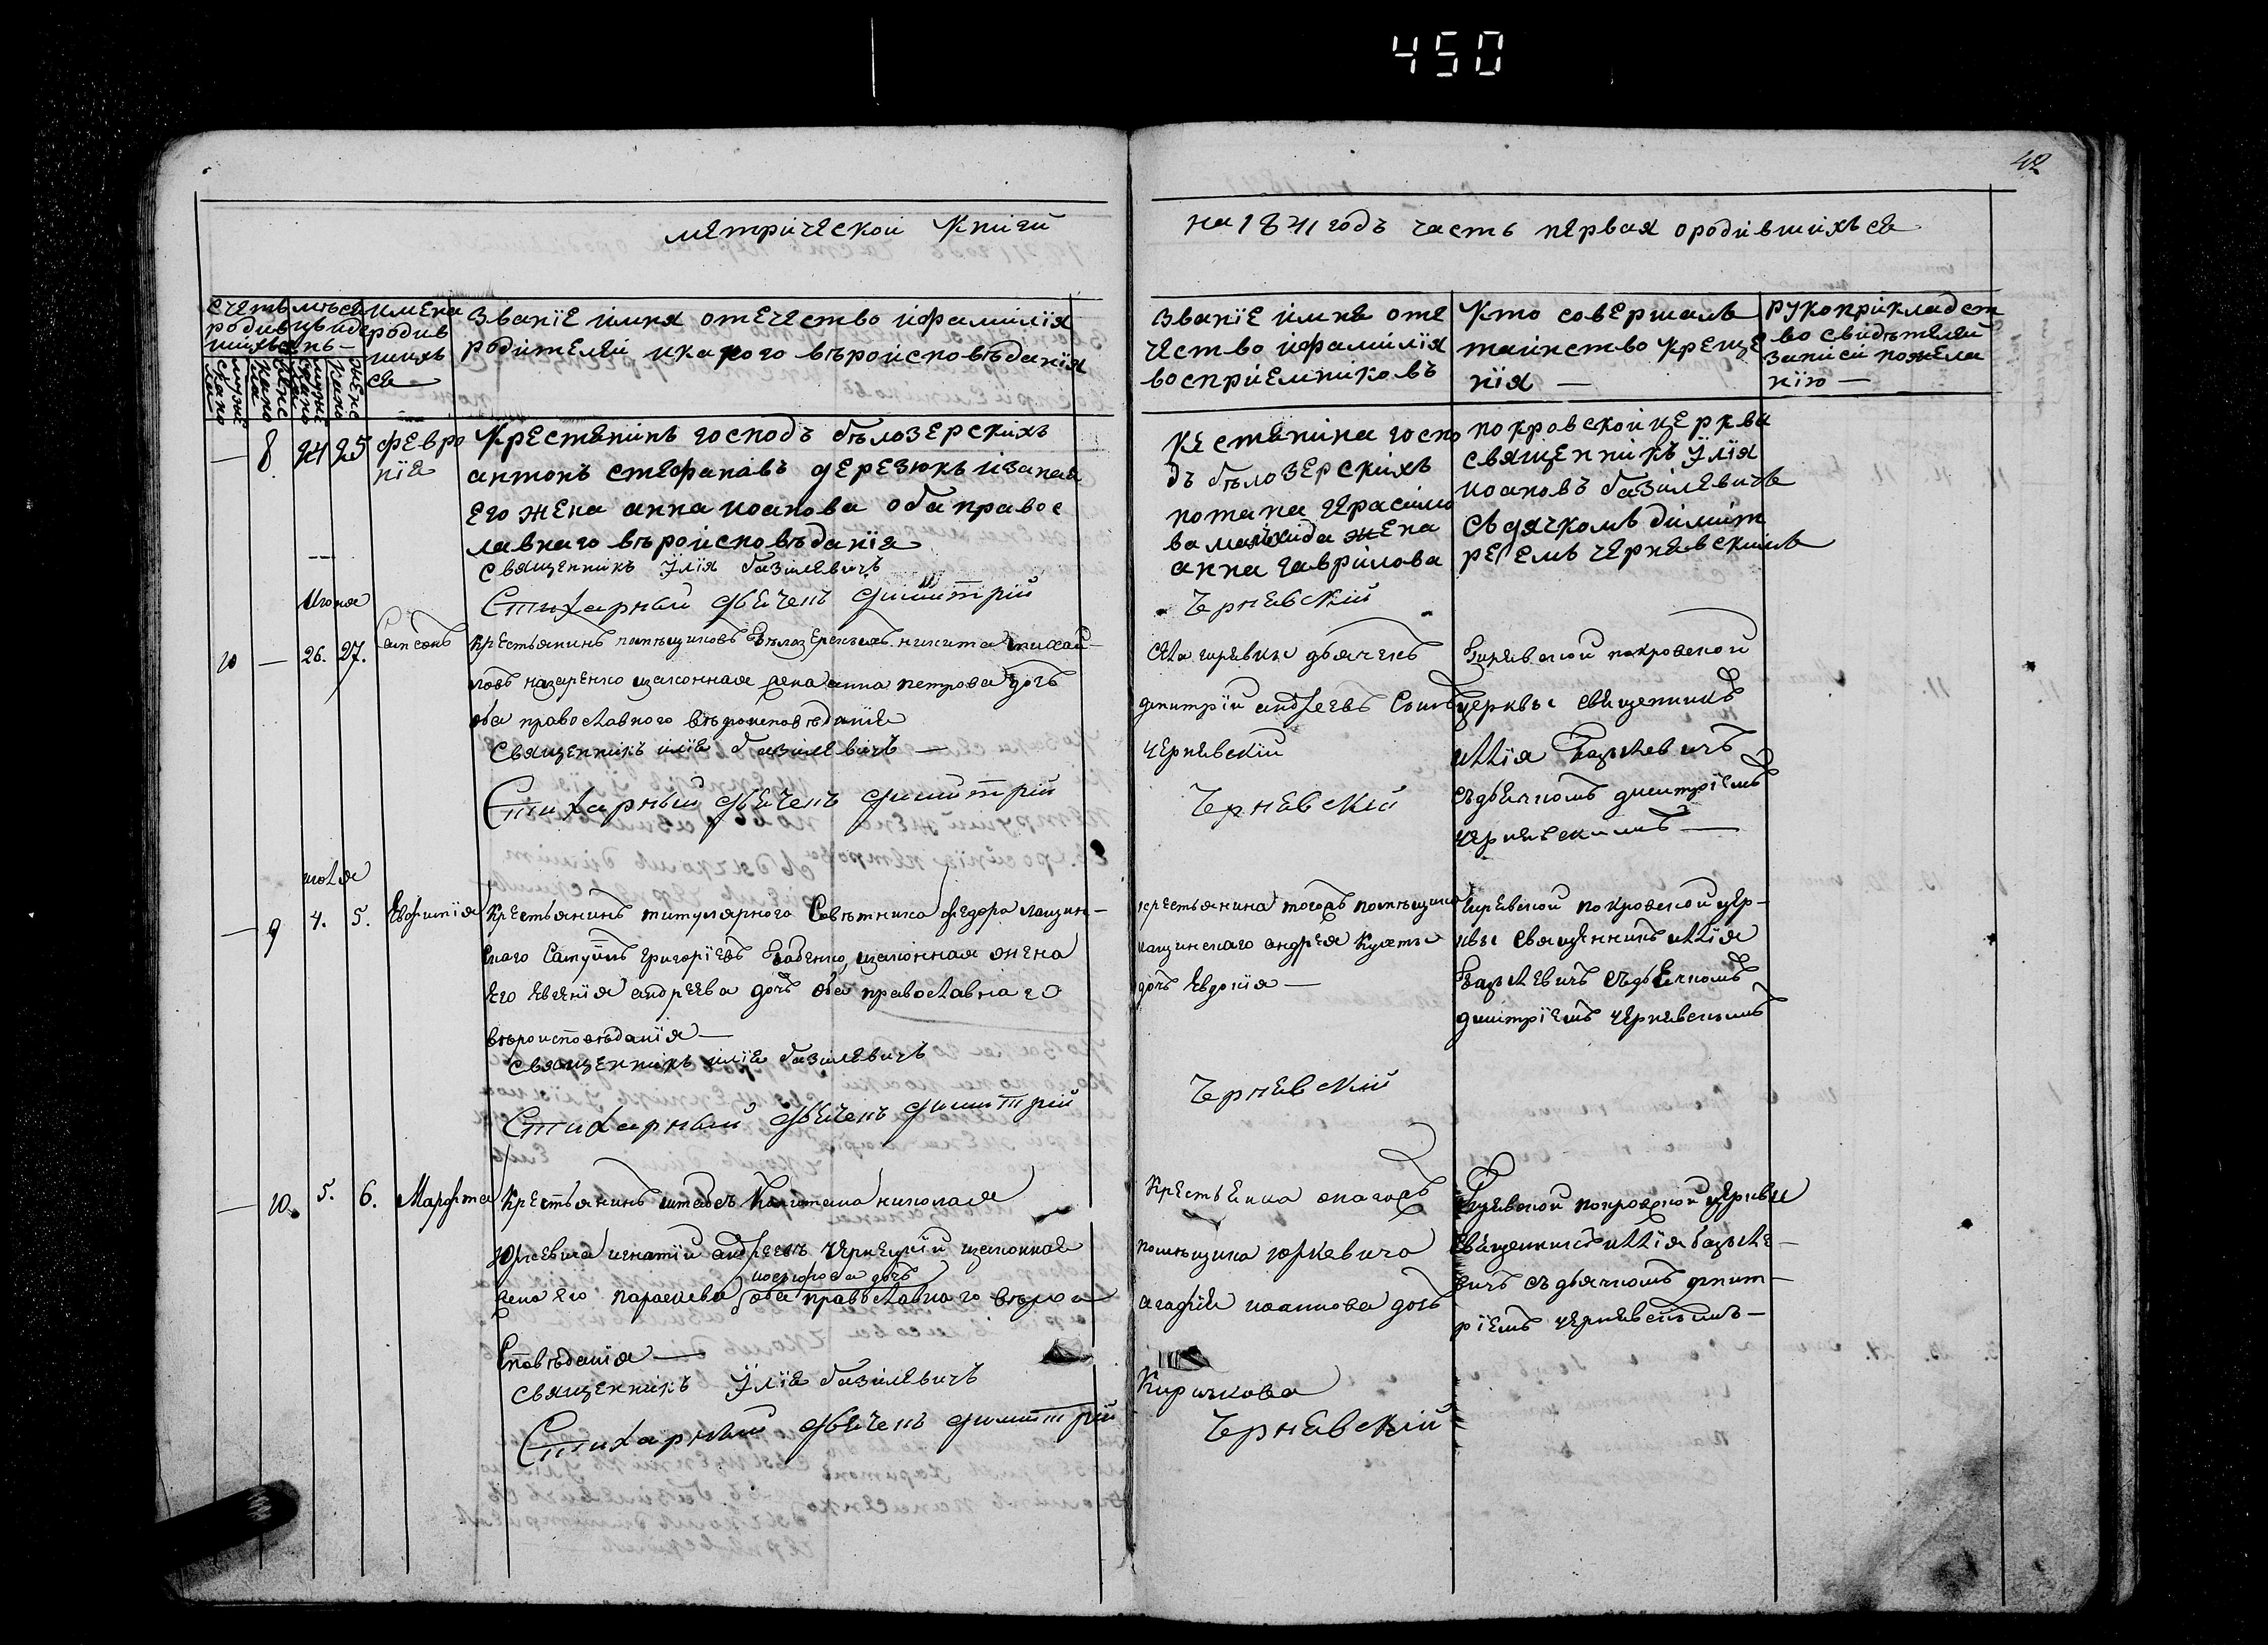 450
42
метрической Книги
на 1841 годъ часть первая ородившихъся
счетъ
родив
шихъся
месѣ
цьиде
нь
имена
родив
шихъ
ся
званїе имѧ отечество ифамилїя
родителей икакого въроисповѣданїя
званїе имѧ оте
чество ифамилїя
восприемниковъ
Кто совершалъ
таинство Креще
нїя —
рукоприкладст
во свидѣтелей
записи пожела
нїю —
— 8 24 25 февро
нїя
Крестянинъ господъ бѣлозерскихъ
антонъ стефановъ дерезюкъ изаная
его жена анна иоанова оба правос
лавнаго вѣроисповѣданїя
священникъ Илїя базилевичъ
Стихарный дьѧчекъ димитрїй
Кестянина госпо
дъ бѣлозерскихъ
потапа герасимо
ва жена
анна гаврилова
Чернѧвскїй
покровской церкви
священникъ Илїя
иоановъ базилевичъ
съдячкомъ димит
реемъ чернявскимъ
Июня
10 — 26. 27. Сампсонъ
Крестьянинъ помѣщиковъ Бѣлозерскихъ никита михай-
ловъ назаренко изаконная жена анна петрова дочъ
оба православного вѣроисповѣданїя
Священникъ илїя базилевичъ —
Стихарный дьѧчекъ димитрїй
села гиревки дьячекъ
димитрїй андреевъ Сынъ
чернявскїй
Чернѧвскїй
Гиревской покровской
церквы священникъ
иллїя Базилевичъ
съдьячкомъ димитрїемъ
чернявскимъ —
июля
— 9 4. 5. Евфимїя
Крестьянинъ титулярного Совѣтника федора лащин-
скаго Самуилъ григорїевъ Бабенко, изаконная жена
его Евгенїя андреева дочь оба православнаго
вѣроисповѣданїя —
священникъ илїя базилевичъ
Стихарный дьѧчекъ димитрїй
крестьянина тогожъ помѣщика
лащинскаго андрея
дочь Евдокїя —
Чернѧвскїй
Гиревской покровской цер-
квы Священникъ иллїя
Базилевичъ съдьячкомъ
димитрїемъ чернявскимъ
— 10. 5. 6. Марфта
Крестьянинъ штабсъ Капитана николая
Юркевича игнатїй андреевъ чернецкїй изаконная
жена его параскева оба православного вѣрои
дочь
сповѣданїя —
священникъ Илїя базилевичъ
Стихарный дьѧчекъ димитрїй
Крестьянка онагожъ
помѣщика юркевича
агафїя иоаннова дочь
Киричкова
Чернѧвскїй
Гиревской покровской церквы
Священникъ иллїя базиле-
вичъ съ дьячкомъ димит-
рїемъ чернявскимъ —